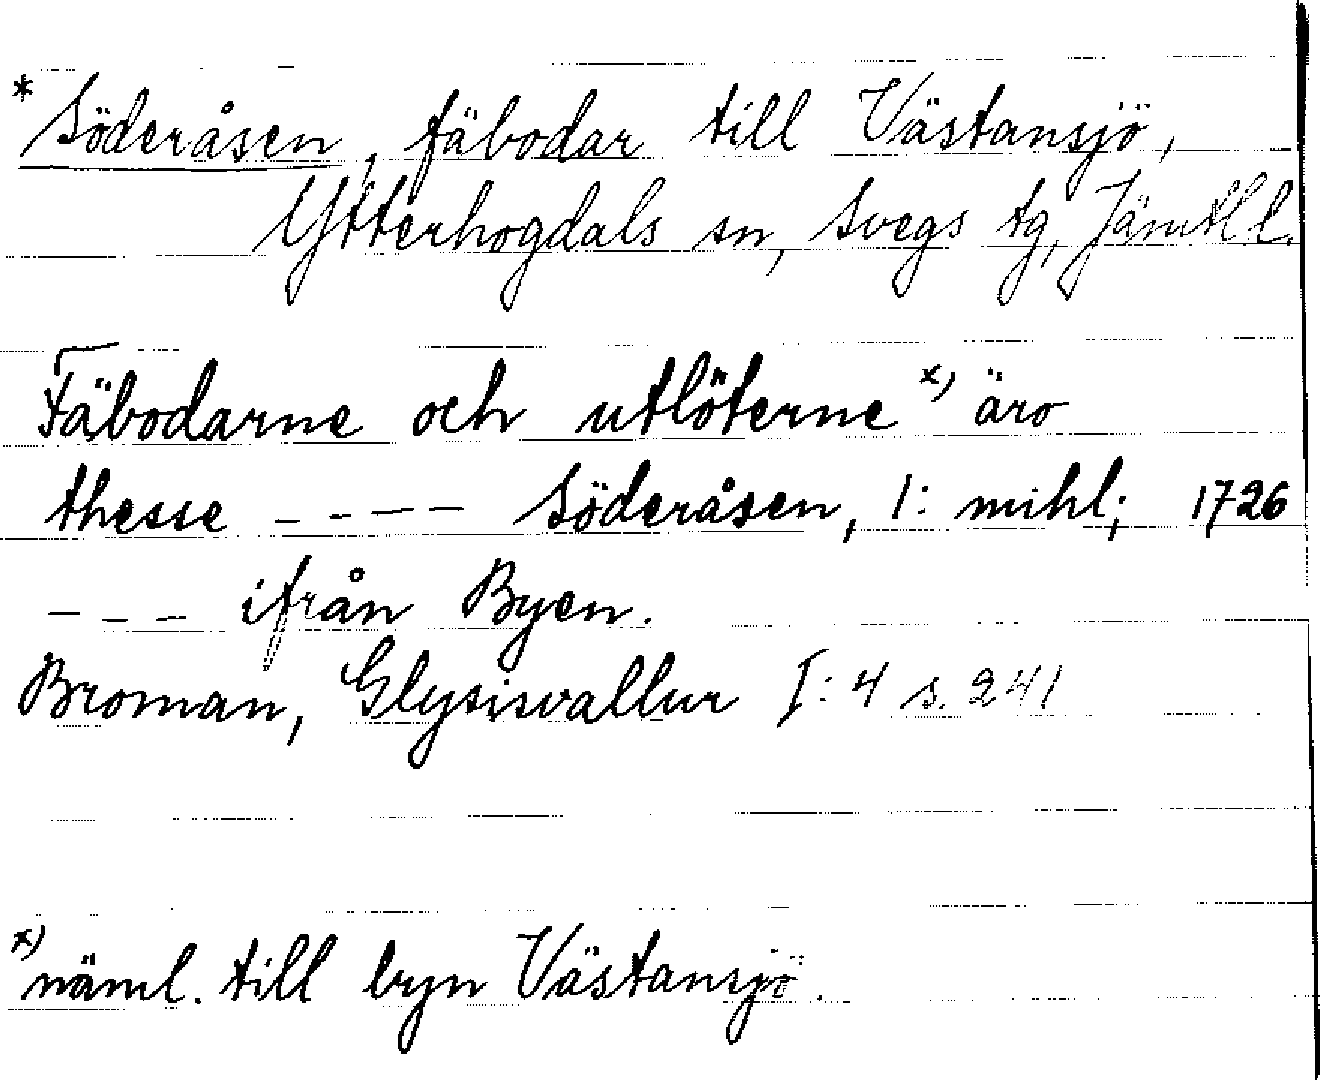 * Söderåsen, fäbodar till Västansjö,
Ytterhogdals sn, Svegs tg, Jämtl. l.
Fäbodarne och utlöterne x) äro
thesse - - - - Söderåsen, 1: mihl; 1726
- - - ifrån Byen.
Broman, Glysisvallur I: 4 s. 241
x) näml. till byn Västansjö.